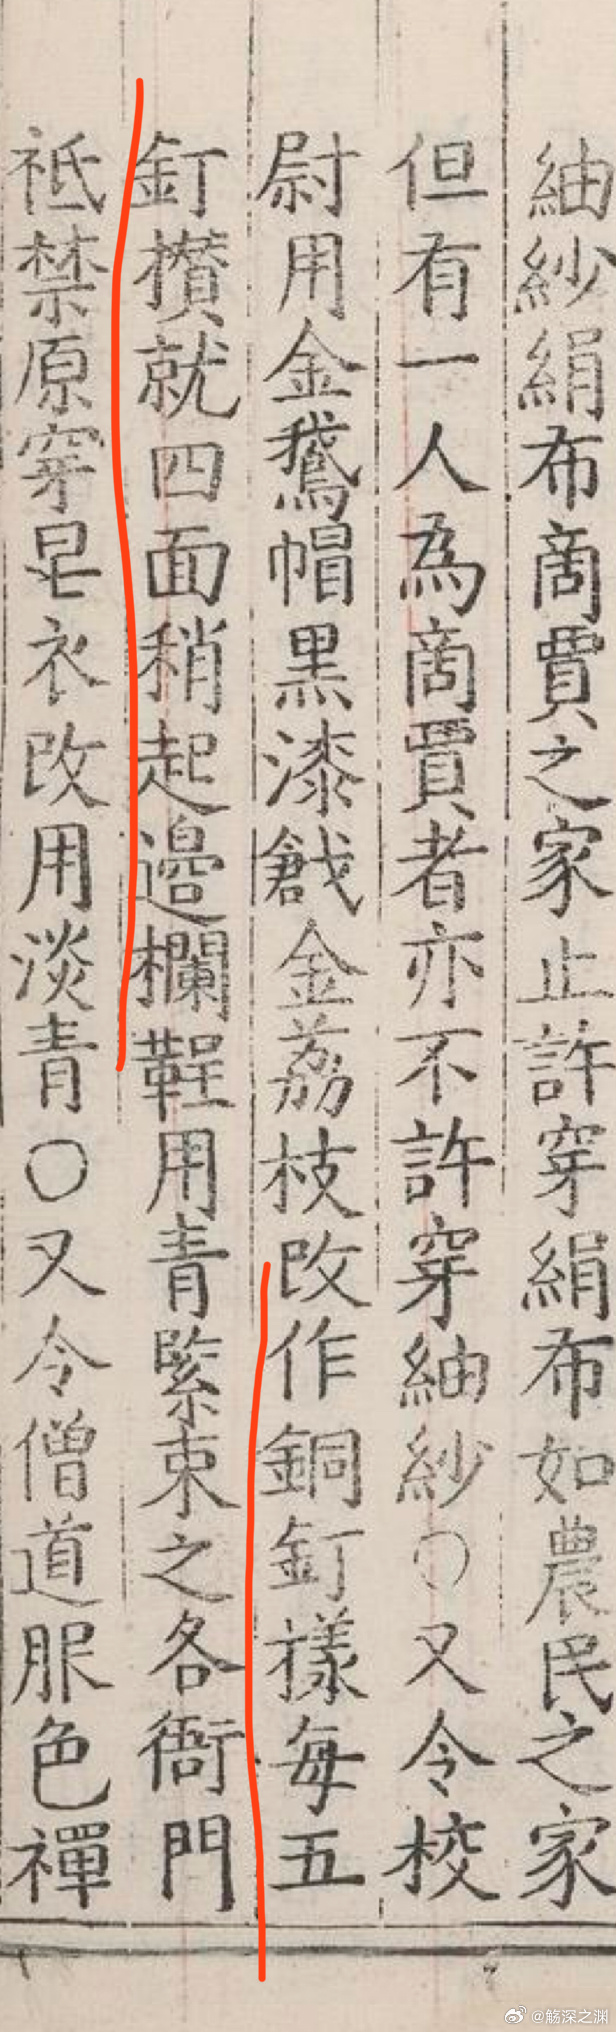 紬紗絹布商賈之家止許穿絹布如農民之家
但有一人為商賈者亦不許穿紬紗○又令校
尉用金鵝帽黑漆戧金荔枝改作銅釘樣每五
釘攅就四面稍起邉欄鞓用青緊束之各衙門
祗禁原穿皂衣改用淡青○又令僧道服色禪
@觞深之渊